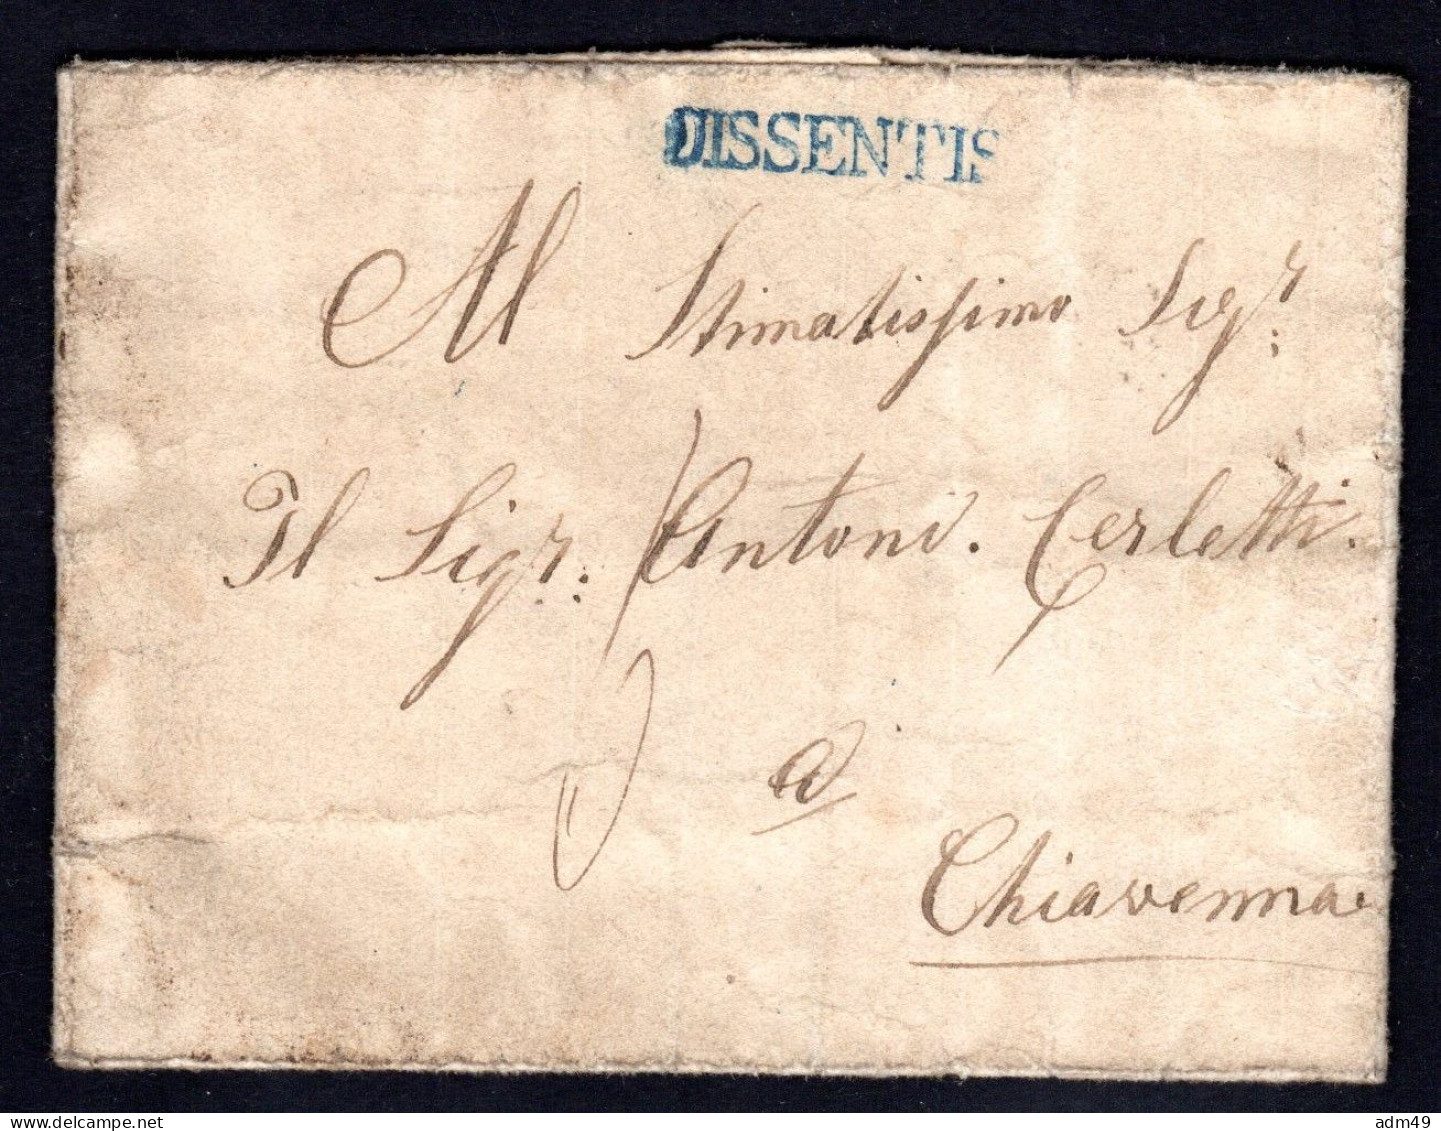 DISSENTIS
Al Stimatissimo Sigr.
Il Sigr. Antoni. Cerletti.
a
Chiavenna
delcampe.net
adm49